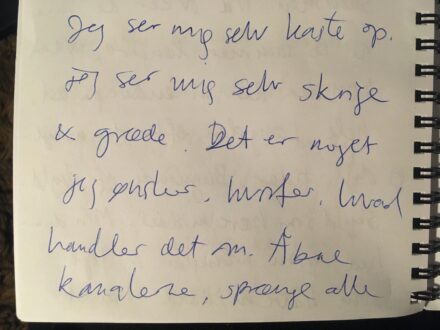 Jeg ser mig selv kaste op.
Jeg ser mig selv skrige
& græde. Det er noget
jeg ønsker, hvorfor, hvad
handler det om. Åbne
kanalerne, sprænge alle